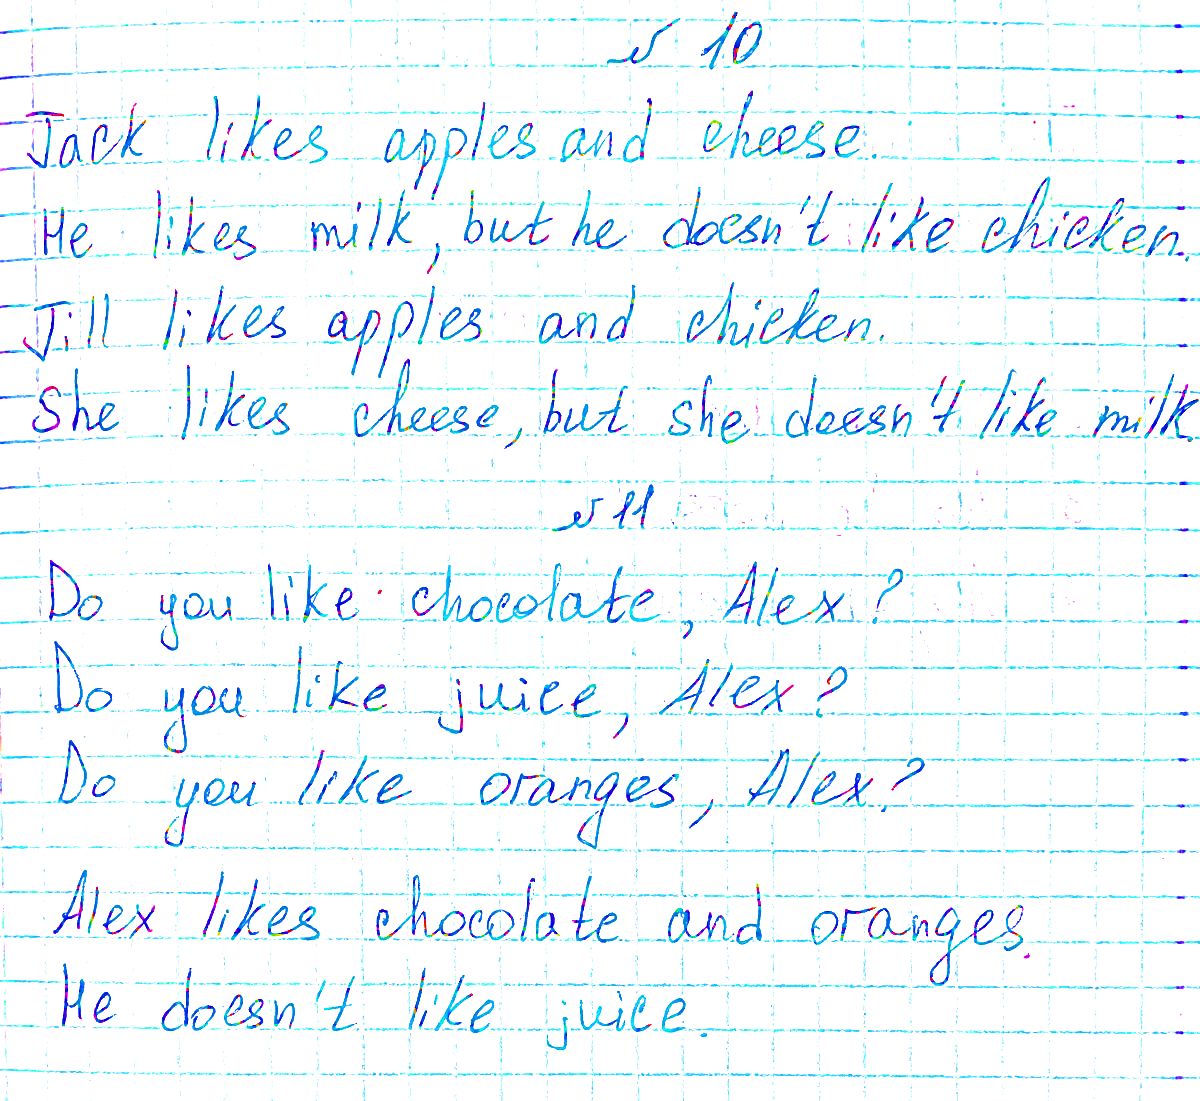 № 10
Jack likes apples and cheese.
He likes milk, but he doesn't like chicken.
Jill likes apples and chicken.
She likes cheese, but she doesn't like milk.
№ 11
Do you like chocolate, Alex?
Do you like juice, Alex?
Do you like oranges, Alex?
Alex likes chocolate and oranges.
He doesn't like juice.